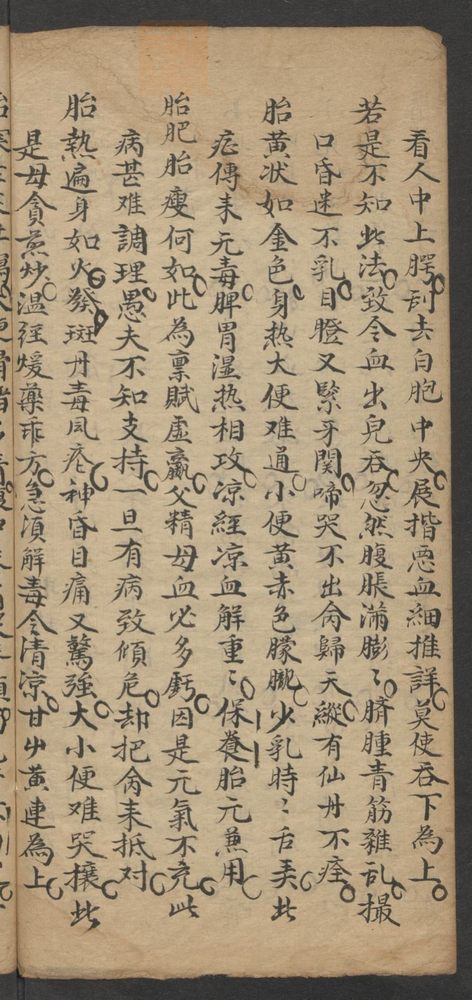 看人中上腭刮去白胞中央展揩恶血細推詳莫使吞下為上
若是不知此法致令血出皃吞忽然腹脹满膨〻臍腫青筋雜乱撮
口昏迷不乳目瞪又緊牙関啼哭不出命歸天縱有仙丹不痊
胎黄状如金色身热大便难通小便黄赤色朦朧少乳時〻舌美此
症傳来元毒脾胃湿热相攻凉經凉血解重〻保養胎元兼用
胎肥胎瘦何如此為禀賦虚羸父精母血必多虧因是元氣不充此
病甚难調理愚夫不知支持一旦有病致傾危却把命来抵对
胎熱遍身如火發斑丹毒风疮神昏目痛又驚強大小便难哭攘此
是母貪煎炒温經煖藥乖方急須解毒令清凉甘艸黄連為上